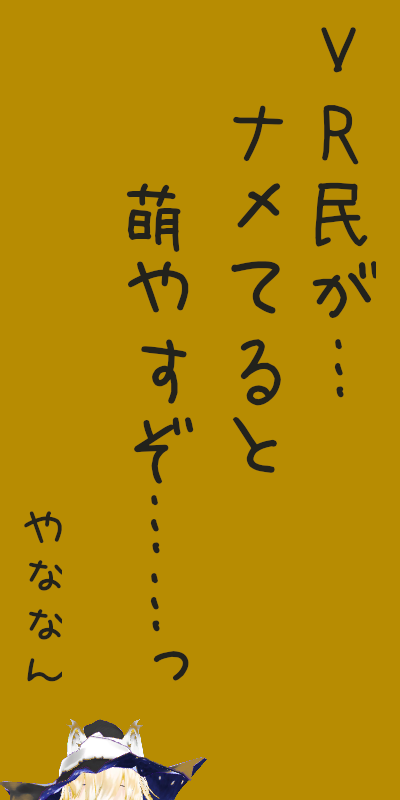 VR民が…
ナメてると
萌やすぞ……っ
やななん